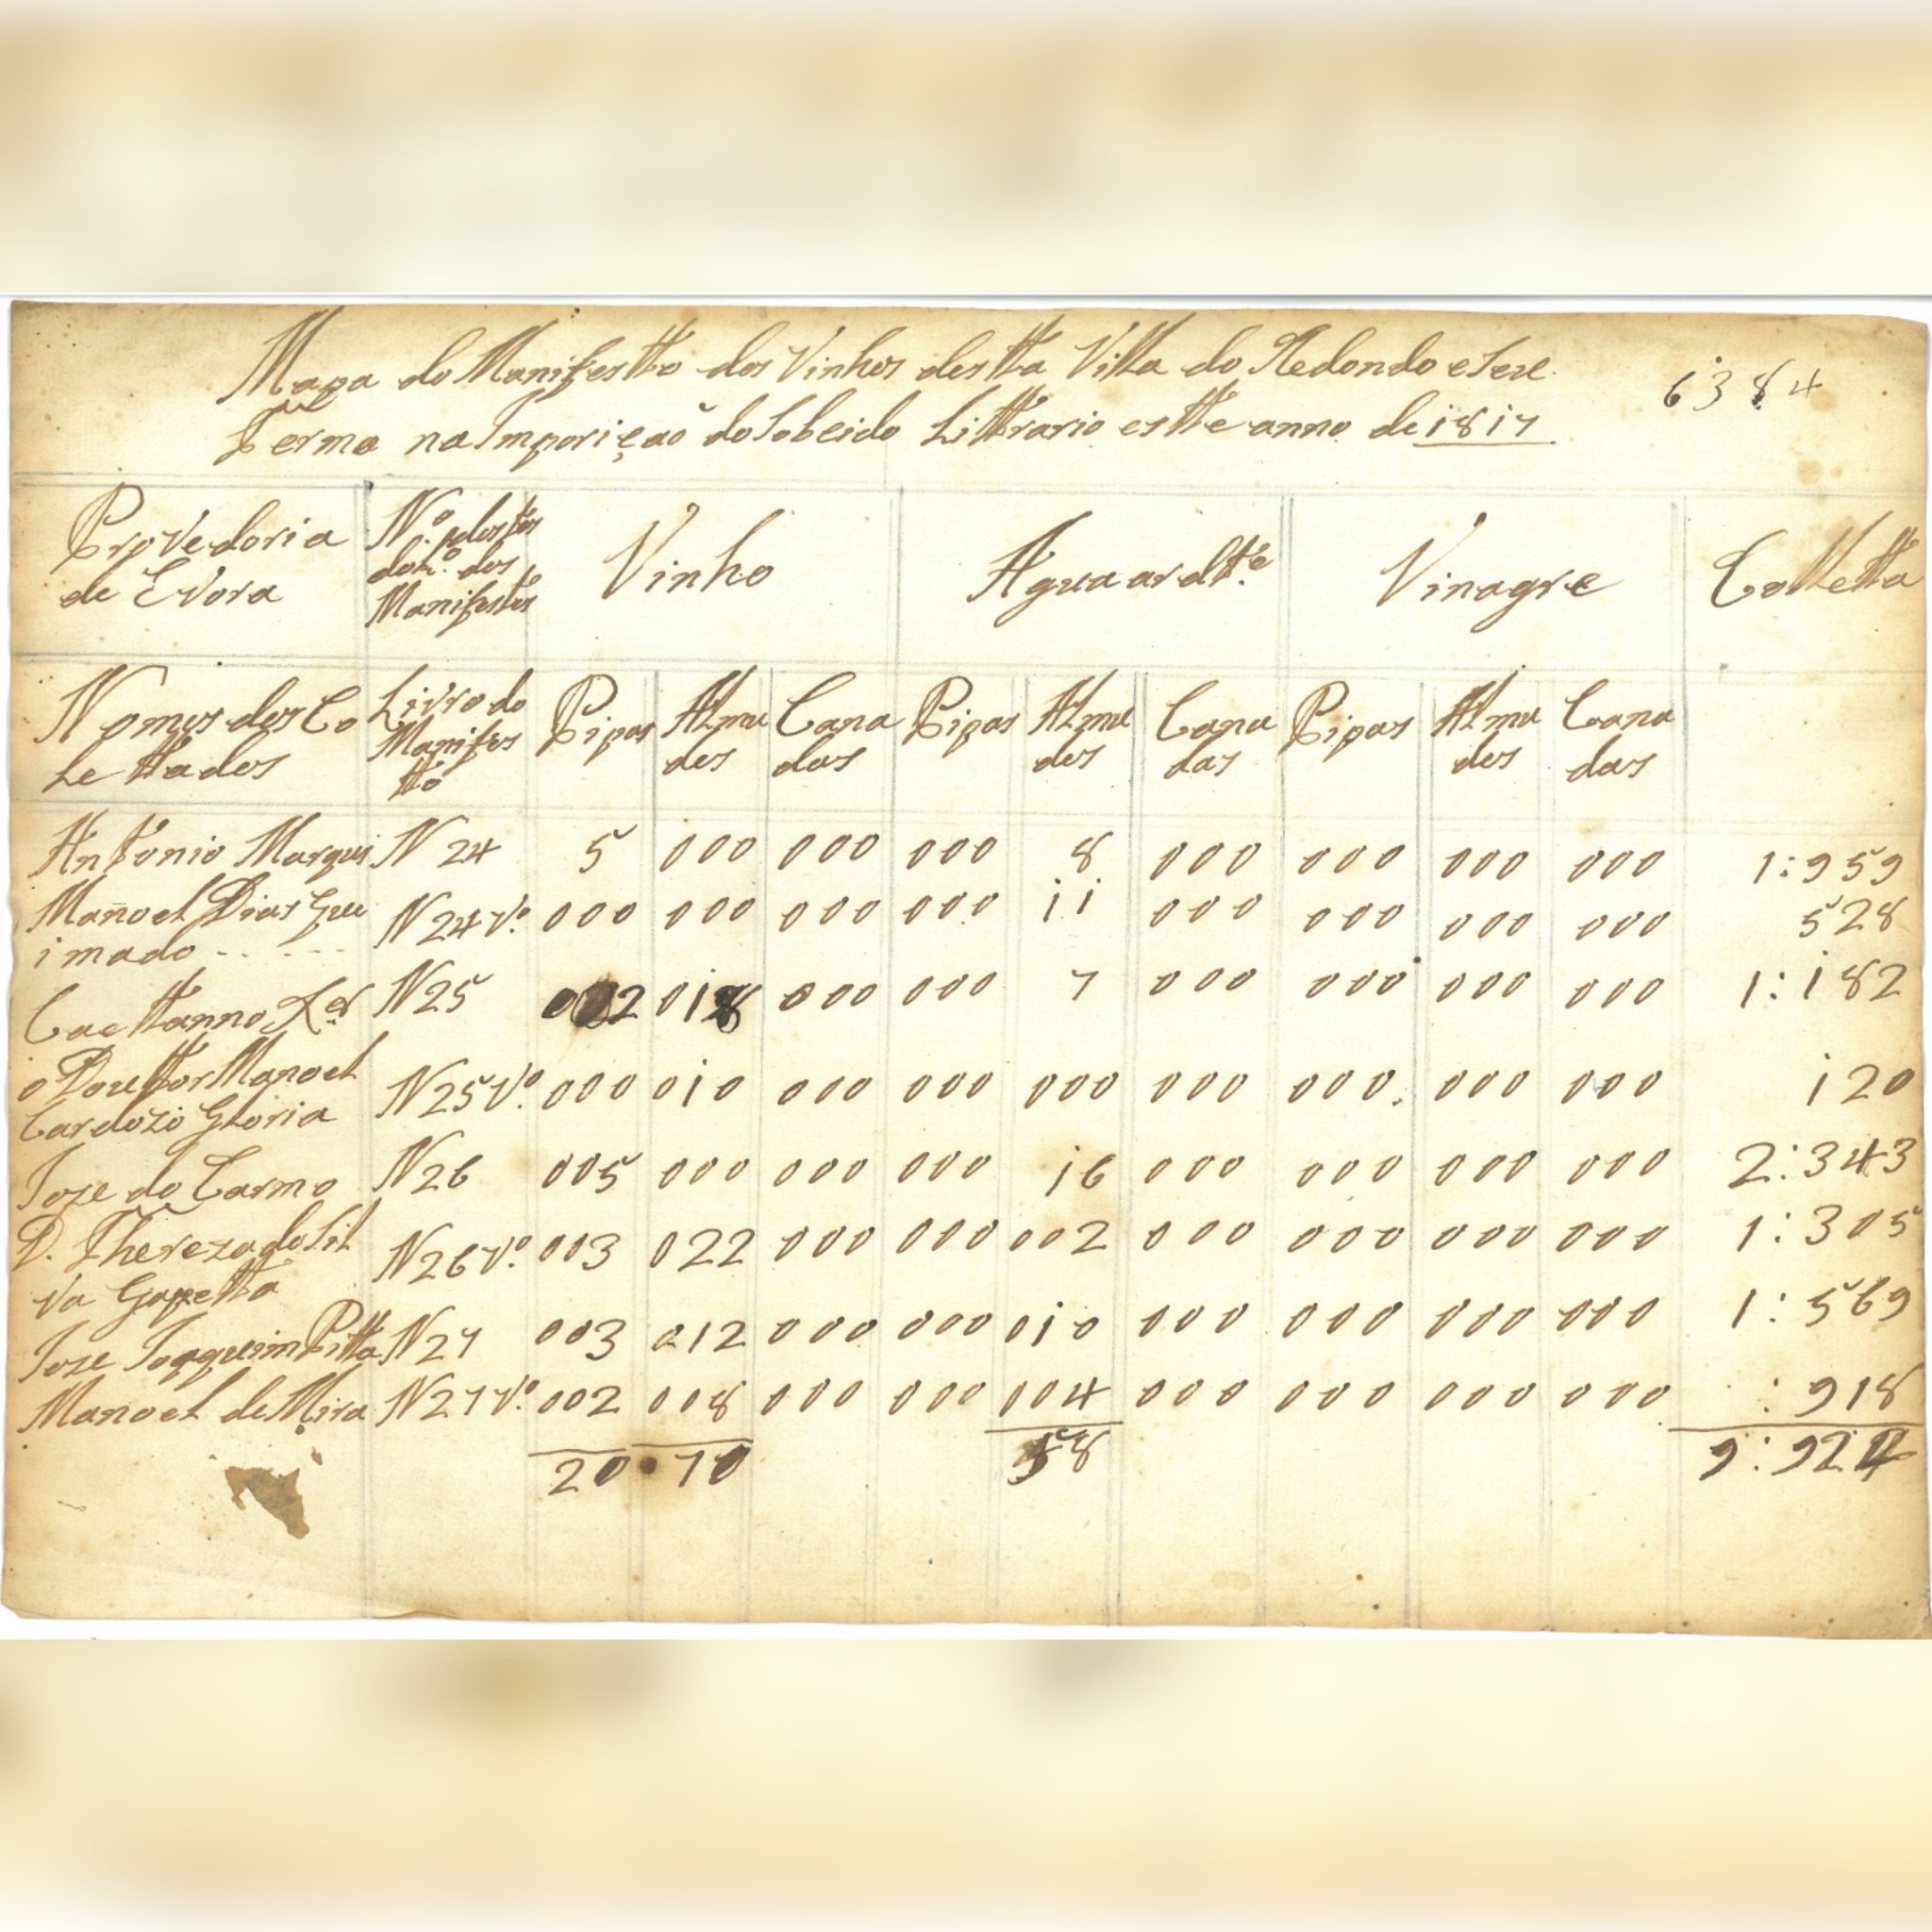 Mapa do Manifestto dos Vinhos destta Villa do Redondo e Seu
Termo na Impozição do Sobcido Litterario estte anno de 1817
6384
Provedoria de Evora Nº dos do Lº dos Manifestos Vinho Aguaardtte Vinagre Colletta
Nomes dos Co Livro do Pipas Almu Cana Pipas Almu Cana Pipas Almu Cana
lettados Manifes des das des das des das
tto
Anttonio Marques N 24 5 000 000 000 8 000 000 000 000 1:959
Manoel Dias Gue N 24 Vº 000 000 000 000 11 000 000 000 000 528
imado
Caettanno Xer N 25 002 018 000 000 7 000 000 000 000 1:182
o Douttor Manoel N 25 Vº 000 010 000 000 000 000 000 000 000 120
Cardozo Gloria
Joze do Carmo N 26 005 000 000 000 16 000 000 000 000 2:343
D. Thereza do Sil N 26 Vº 003 022 000 000 002 000 000 000 000 1:305
va Gapetta
Joze Joaquim Pitta N 27 003 012 000 000 010 000 000 000 000 1:569
Manoel de Mira N 27 Vº 002 008 000 000 004 000 000 000 000 :918
20 70 58 9:924